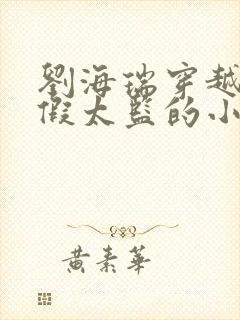 劉海瑞穿越
假太監的小
黃素華